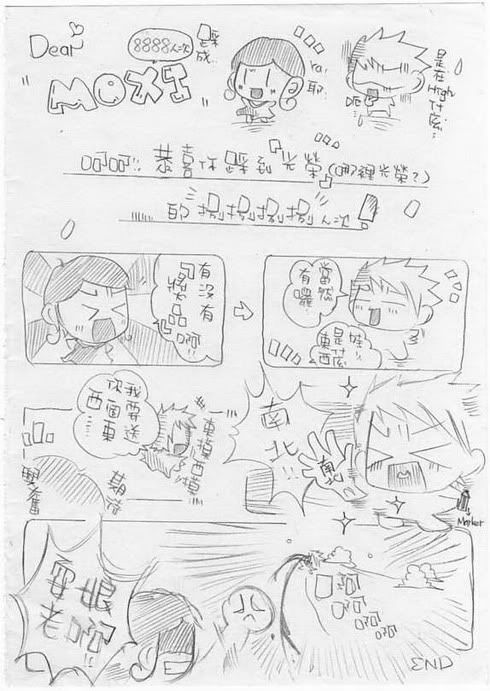 Dear
MOXI
8888人次
達成…
ya!
耶…
呃…
是在High什麼…
呵呵!! 恭喜你踩到光榮(哪裡光榮?)
的捌捌捌捌人次!
有沒有獎品啊!!
當然有囉…
是什麼東西哇!!
我要送你個東西……
東摸西摸
南北!!
南北
期待
興奮
Marker
耍娘老啊!!
呵呵呵呵呵
END